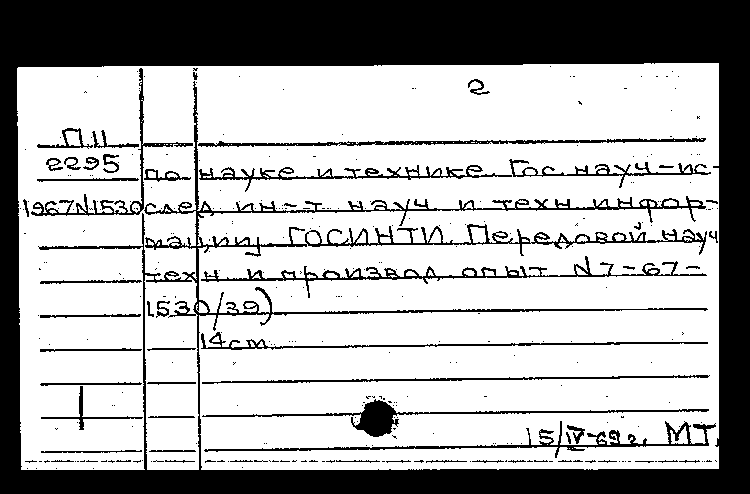 2
П11
2295
по науке и технике. Гос. науч-ис-
1967N1530 след ин-т науч и техн инфор-
мации ГОСИНТИ. Передовой науч
техн и производ опыт N7-67-
1530/39)
14 cm.
15/IV-69г. МТ.